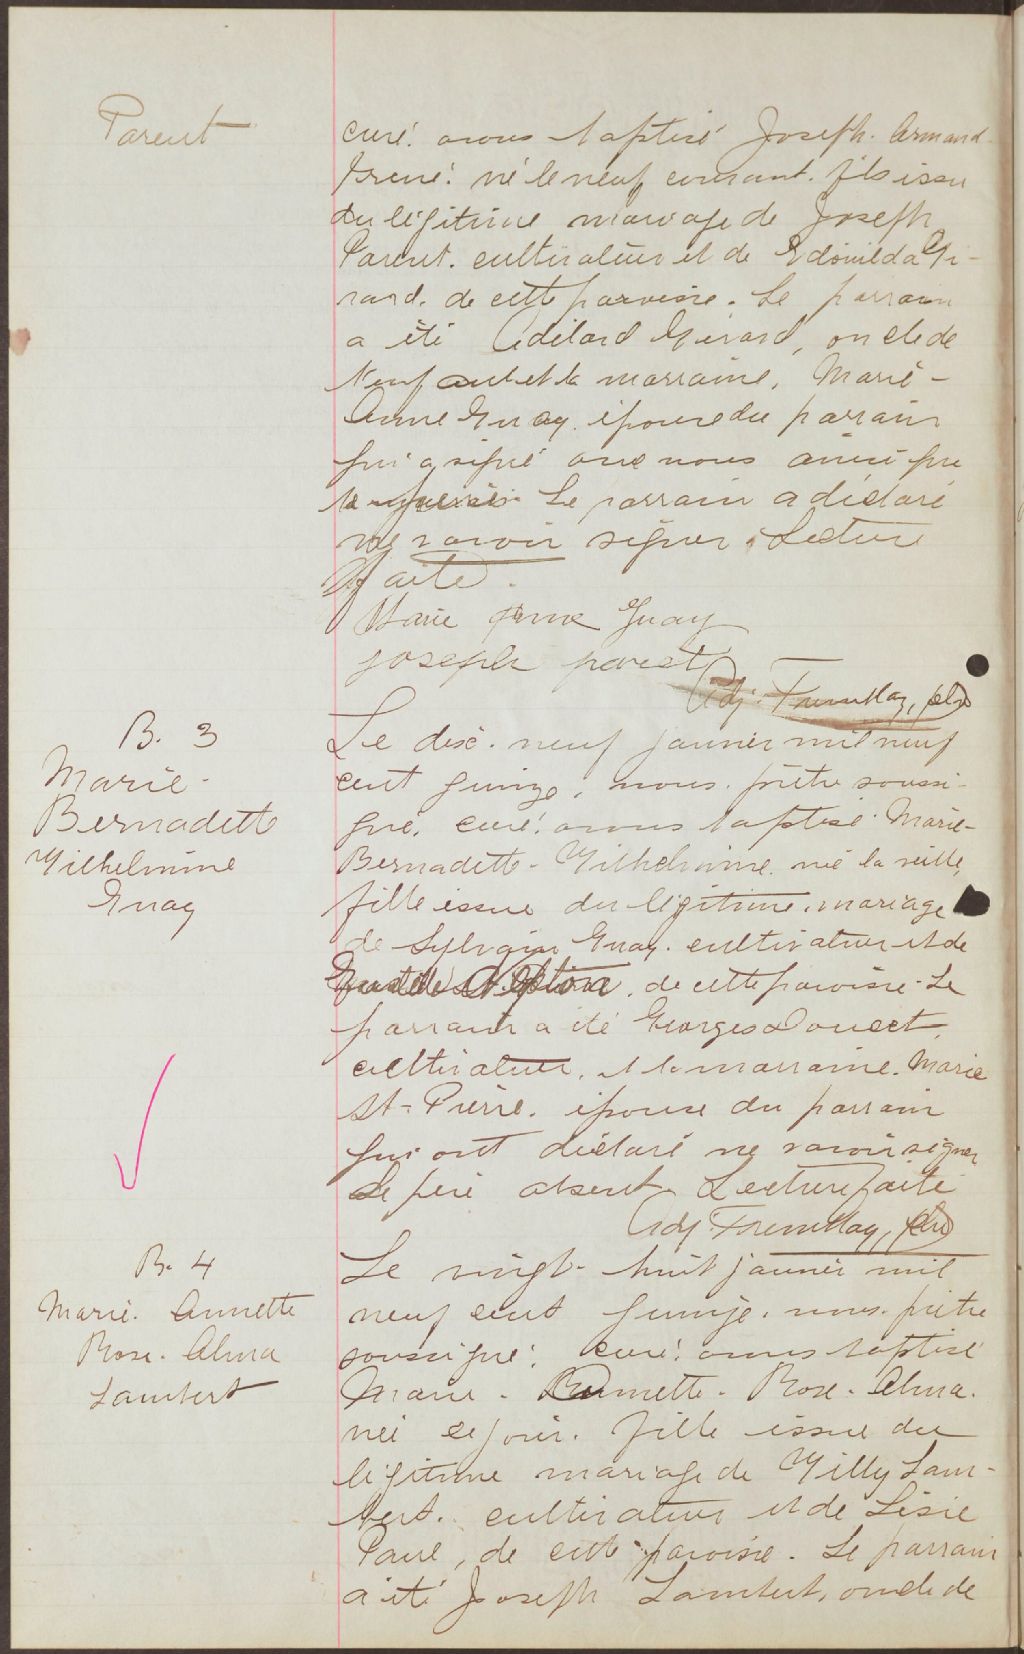 Parent
curé. avons baptisé Joseph. Armand
Irené. né le neuf courant. fils issu
du légitime mariage de Joseph
Parent. cultivateur et de Edouilda Gi-
rard. de cette paroisse. Le parrain
a été Adélard Girard, oncle de
l'enfant et la marraine, Marie-
Anne Guay. épouse du parrain
qui a signé avec nous ainsi que
le Le parrain a déclaré
ne savoir signer. Lecture
faite.
Marie Anne Guay
joseph parent
Adj. Tremblay, ptre
B. 3
Marie-
Bernadette
Wilhelmine
Guay
Le dix-neuf janvier mil neuf
cent quinze, nous. prêtre soussi-
gné, curé, avons baptisé Marie-
Bernadette-Wilhelmine. née la veille,
fille issue du légitime mariage
de Sylvain Guay. cultivateur et de
de cette paroisse. Le
parrain a été Georges Doucet,
cultivateur, et la marraine. Marie
St-Pierre. épouse du parrain
qui ont déclaré ne savoir signer
Le père absent. Lecture faite
Adj. Tremblay, ptre
B. 4
Marie. Annette
Rose. Alma
Lambert
Le vingt-huit janvier mil
neuf cent quinze. nous. prêtre
soussigné, curé, avons baptisé
Marie-Annette-Rose-Alma.
née ce jour. fille issue du
légitime mariage de Willy Lam-
bert. cultivateur et de Lésie
Paré, de cette paroisse. Le parrain
a été Joseph Lambert, oncle de